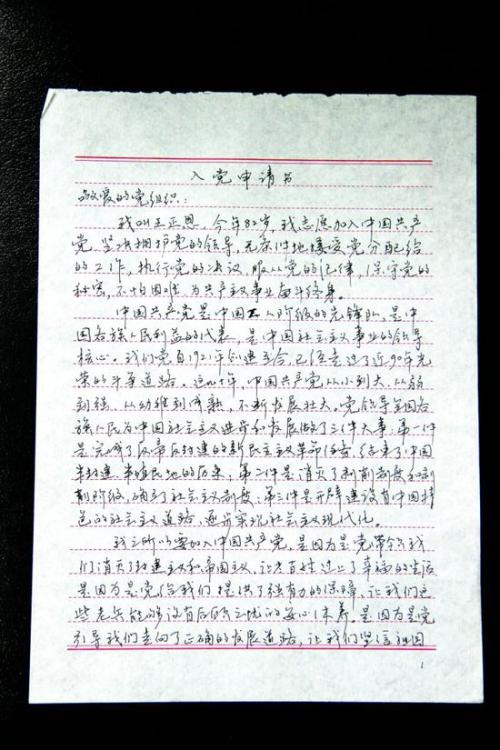 入党申请书
敬爱的党组织：
我叫王正恩，今年82岁，我志愿加入中国共产
党，坚决拥护党的领导，无条件地接受党分配给
的工作，执行党的决议，服从党的纪律，保守党的
秘密，不怕困难，为共产主义事业奋斗终身。
中国共产党是中国工人阶级的先锋队，是中
国各族人民利益的代表，是中国社会主义事业的领导
核心。我们党自1921年创建至今，已经走过了近90年光
荣的斗争道路。这几十年，中国共产党从小到大、从弱
到强、从幼稚到成熟，不断发展壮大。党领导全国各
族人民为中国社会主义进步和发展做了三件大事：第一件
是完成了反帝反封建的新民主主义革命任务，结束了中国
半封建、半殖民地的历史；第二件是消灭了剥削制度和剥
削阶级，确立了社会主义制度；第三件是开辟建设有中国特
色的社会主义道路，逐步实现社会主义现代化。
我之所以要加入中国共产党，是因为是党带领我
们消灭了封建主义和帝国主义，让老百姓过上了幸福的生活
是因为是党给我们提供了强有力的保障，让我们这
些老兵能够没有后顾之忧的安心休养。是因为是党
引导我们走向了正确的发展道路，让我们坚信祖国
1